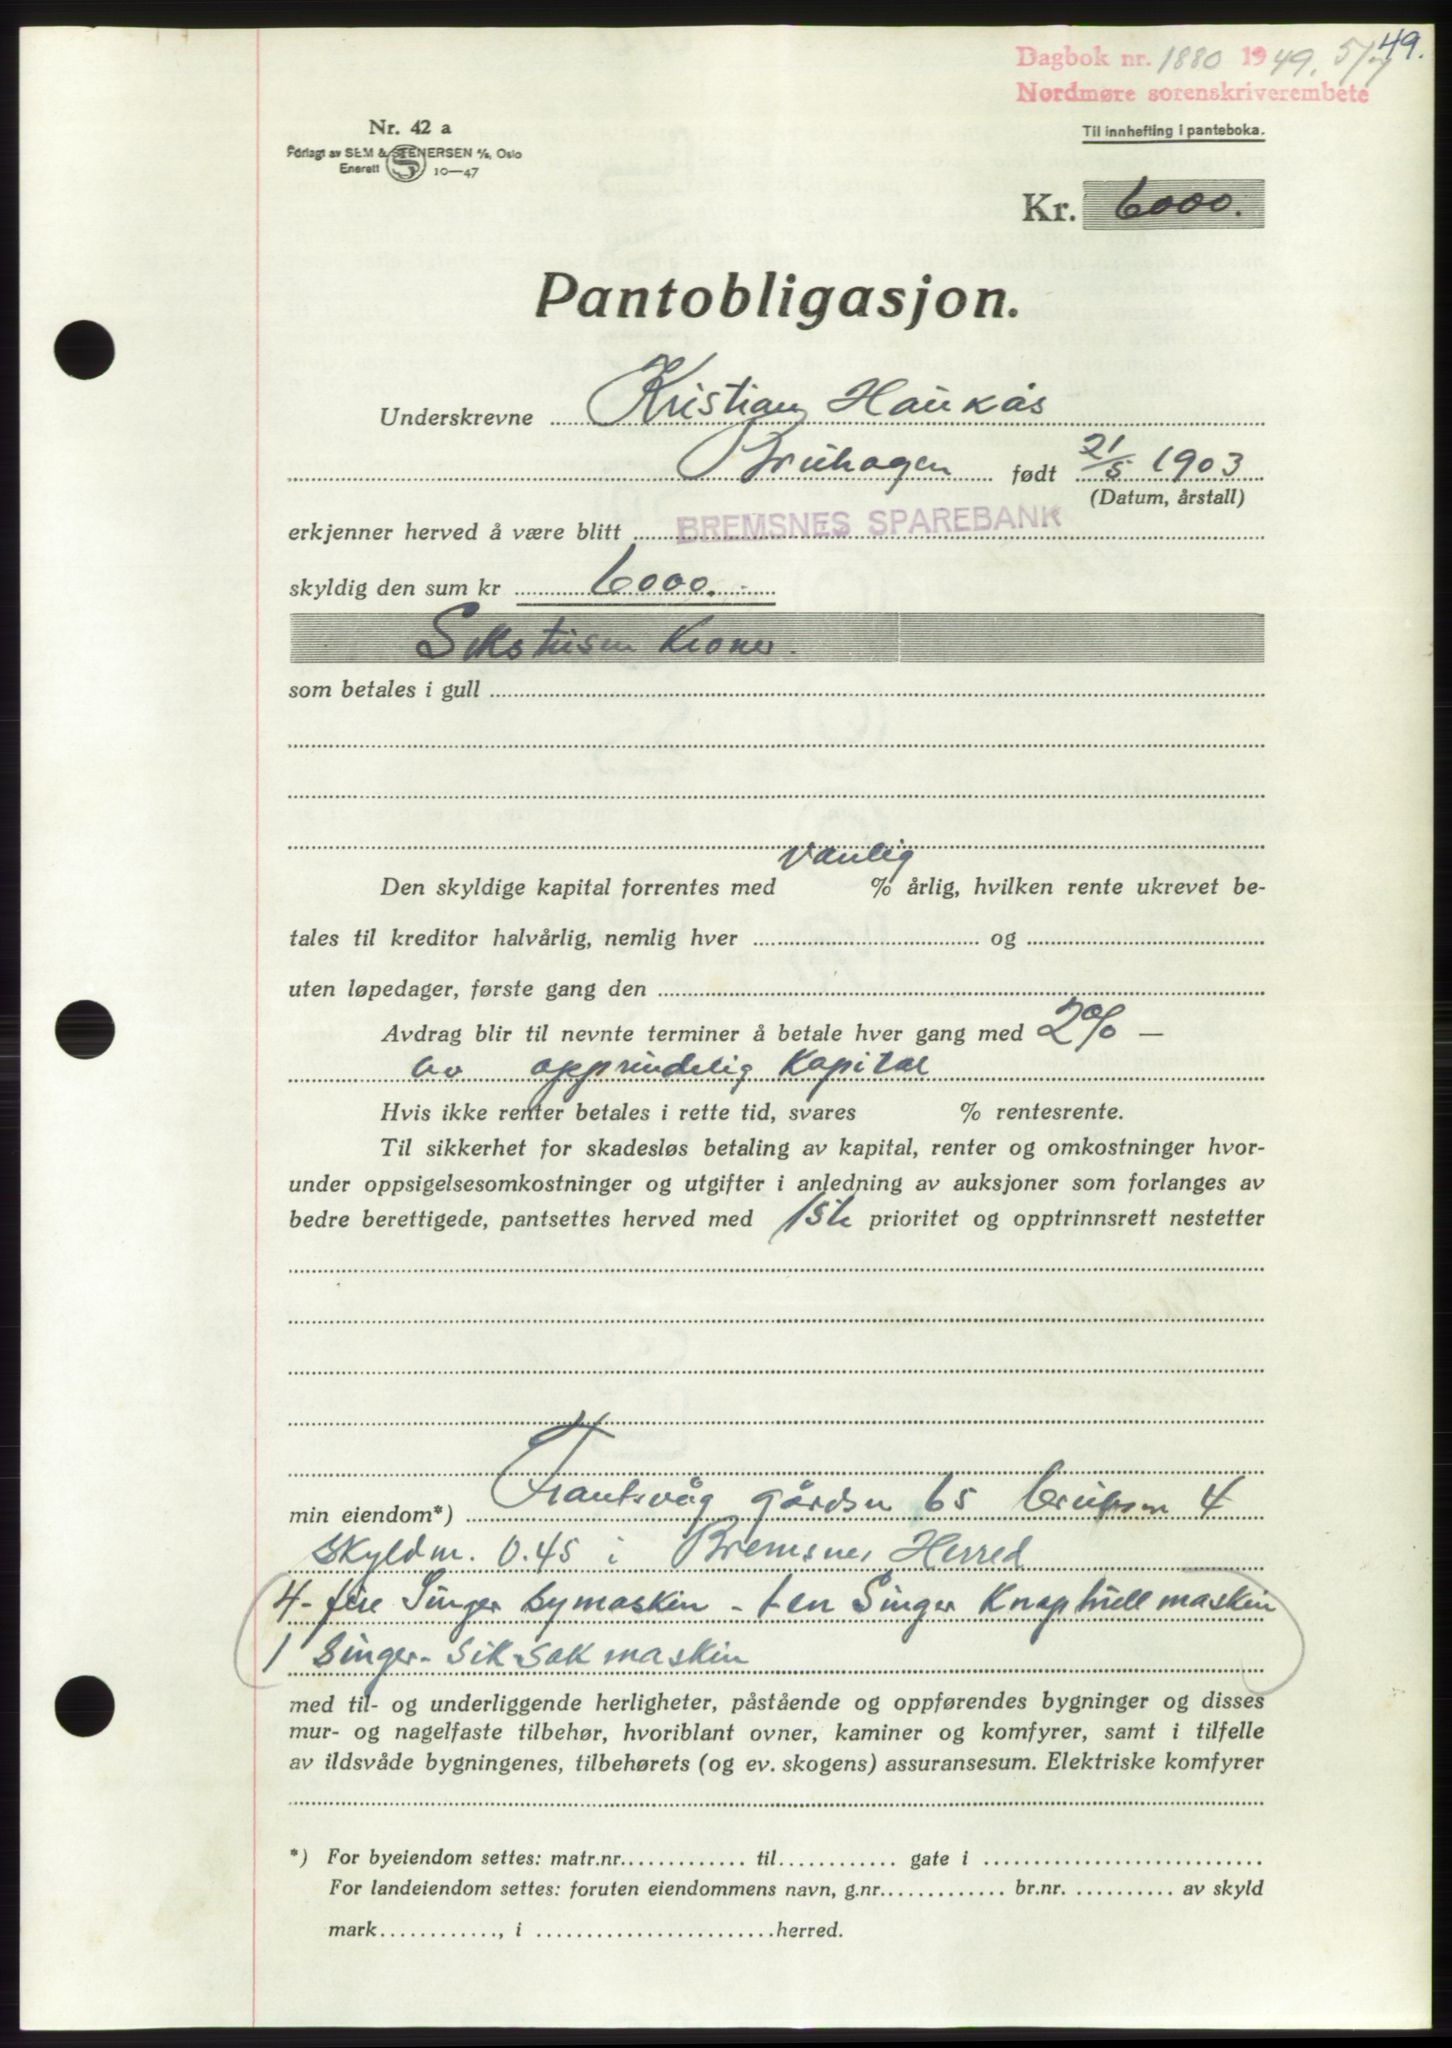 49.
Dagbok nr. 1880 1949. 5/7
Nordmøre sorenskriverembete
Nr. 42 a
Forlagt av SEM & STENERSEN A/S, Oslo
Enerett S 10—47
Til innhefting i panteboka.
Kr. 6000.
Pantobligasjon.
Underskrevne Kristian Haukås
Bruhagen født 21/5 1903
(Datum, årstall)
erkjenner herved å være blitt BREMSNES SPAREBANK
skyldig den sum kr 6000.-
Sekstusen Kroner.
som betales i gull
vanlig
Den skyldige kapital forrentes med % årlig, hvilken rente ukrevet be-
tales til kreditor halvårlig, nemlig hver og
uten løpedager, første gang den
Avdrag blir til nevnte terminer å betale hver gang med 2% —
av opprindelig Kapital
Hvis ikke renter betales i rette tid, svares % rentesrente.
Til sikkerhet for skadesløs betaling av kapital, renter og omkostninger hvor-
under oppsigelsesomkostninger og utgifter i anledning av auksjoner som forlanges av
bedre berettigede, pantsettes herved med 1ste prioritet og opptrinnsrett nestetter
min eiendom*) Frantsvåg gårdsn 65 bruksn 4
skyldm. 0.45 i Bremsnes Herred
4- fire Singer symaskin - 1 en Singer Knaphull maskin
1 Singer- sik-sak maskin
med til- og underliggende herligheter, påstående og oppførendes bygninger og disses
mur- og nagelfaste tilbehør, hvoriblant ovner, kaminer og komfyrer, samt i tilfelle
av ildsvåde bygningenes, tilbehørets (og ev. skogens) assuransesum. Elektriske komfyrer
*) For byeiendom settes: matr.nr. til gate i
For landeiendom settes: foruten eiendommens navn, g.nr. br.nr. av skyld
mark , i herred.